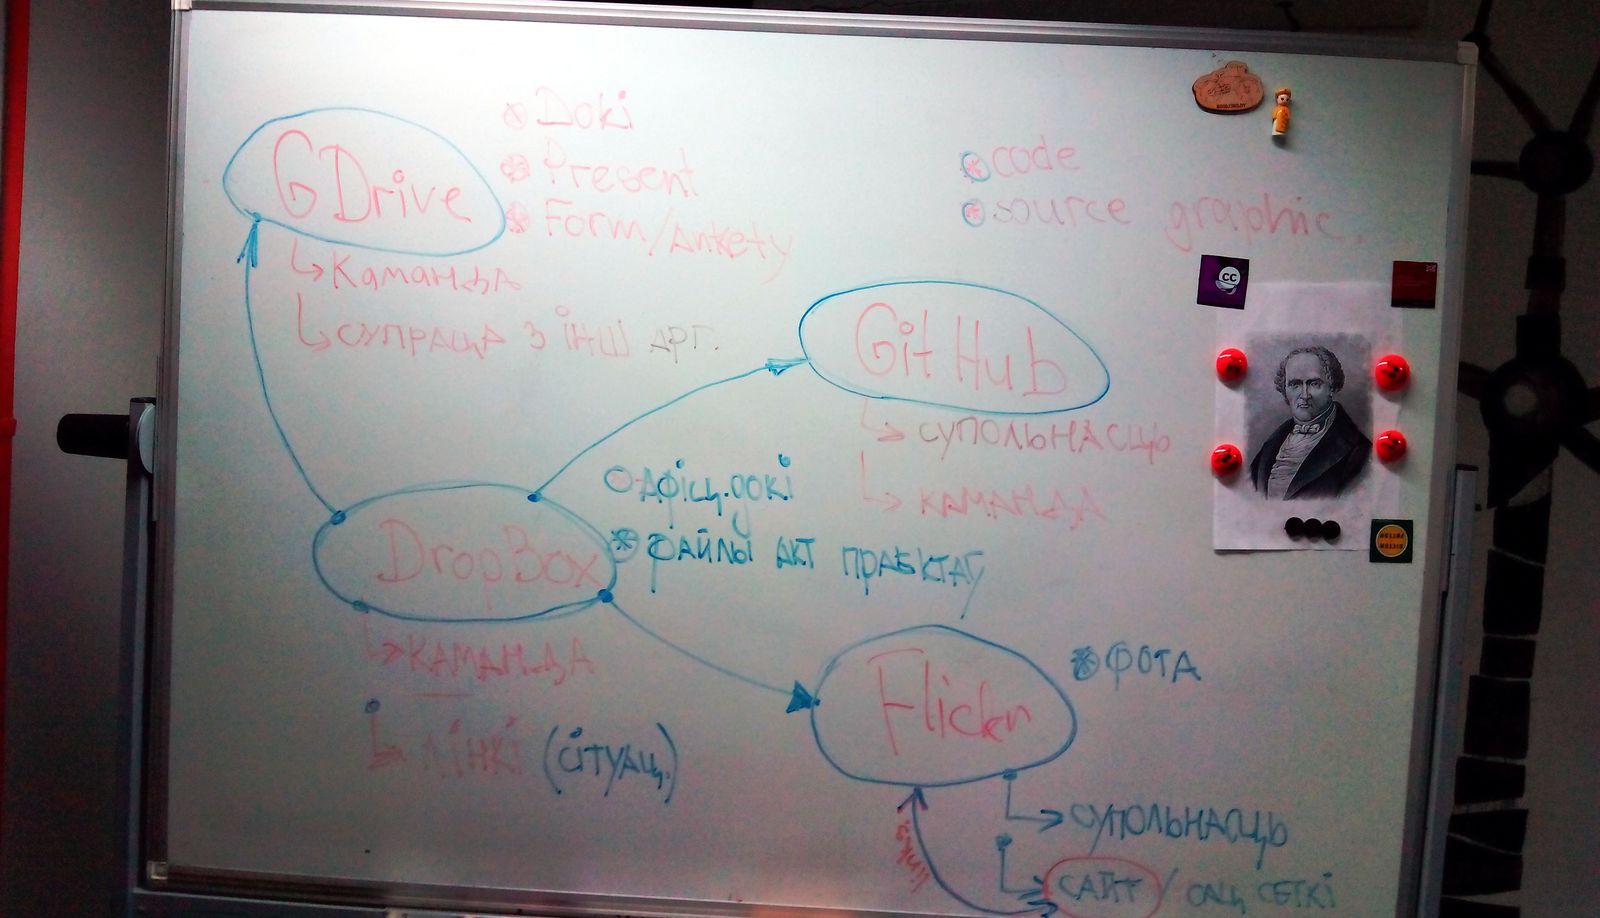 GDrive
Dokі
Present
Form/Ankety
Каманда
супраца з інш арг.
code
source graphic.
GitHub
супольнасць
каманда
DropBox
Афіц. докі
файлы акт праектаў
каманда
лінкі (сітуац.)
Flickr
фота
супольнасць
сайт / сац сеткі
CC